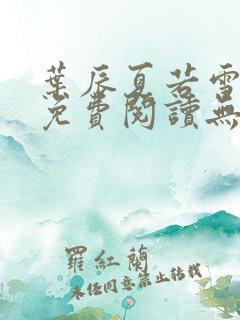 葉辰夏若雪
免費閱讀無
羅紅蘭
未經同意禁止轉載